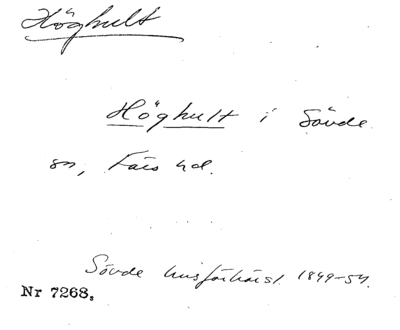 Höghult
Höghult i Sövde
sn, Färs hd.
Sövde husförhörsl. 1849-54.
Nr 7268.